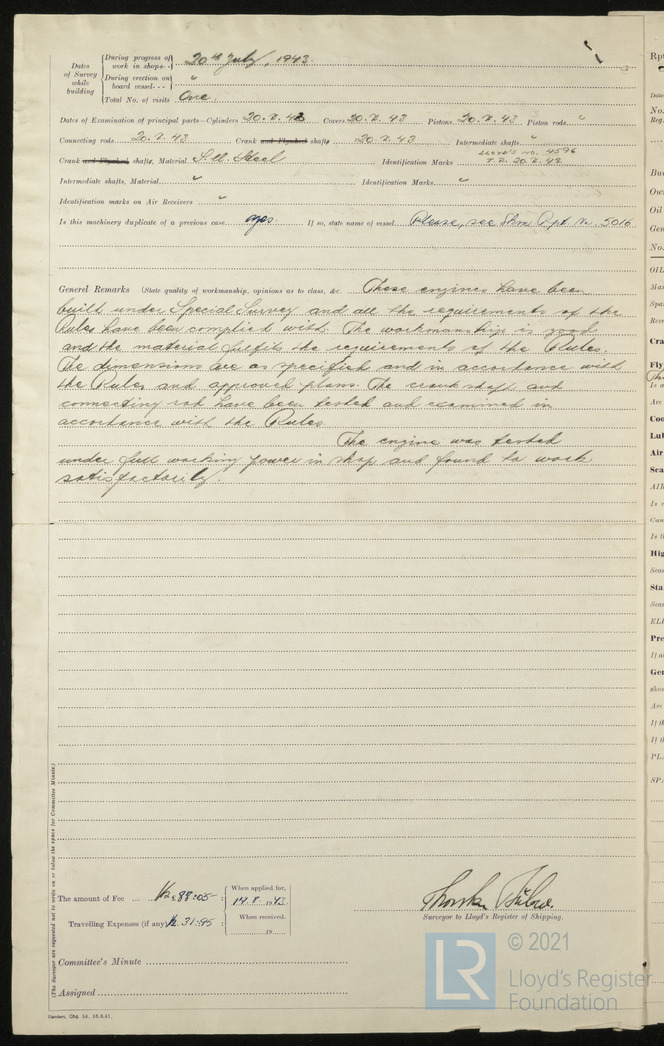 Dates of Survey while building
During progress of work in shops - - 20th July, 1943.
During erection on board vessel - - - "
Total No. of visits One.
Dates of Examination of principal parts—Cylinders 20.7.43 Covers 20.7.43 Pistons 20.7.43 Piston rods "
Connecting rods 20.7.43 Crank and Flywheel shafts 20.7.43 Intermediate shafts "
Crank and Flywheel shafts, Material S.M. Steel Identification Marks LLOYD'S No. 4596
T.B. 20.7.43
Intermediate shafts, Material " Identification Marks "
Identification marks on Air Receivers "
Is this machinery duplicate of a previous case yes. If so, state name of vessel Please, see Rpt No. 5016
General Remarks (State quality of workmanship, opinions as to class, &c. These engines have been
built under Special Survey and all the requirements of the
Rules have been complied with. The workmanship is good
and the material fulfils the requirements of the Rules.
The dimensions are as specified and in accordance with
the Rules and approved plans. The crankshaft and
connecting rods have been tested and examined in
accordance with the Rules.
The engine was tested
under full working power in shop and found to work
satisfactorily.
(The Surveyor are requested not to write on or below the space for Committee Minute.)
The amount of Fee ... 88:05 :
When applied for, 14.8.1943
Travelling Expenses (if any) 31:95 :
When received, 19
Surveyor to Lloyd's Register of Shipping.
Committee's Minute
Assigned
© 2021
LR
Lloyd's Register
Foundation